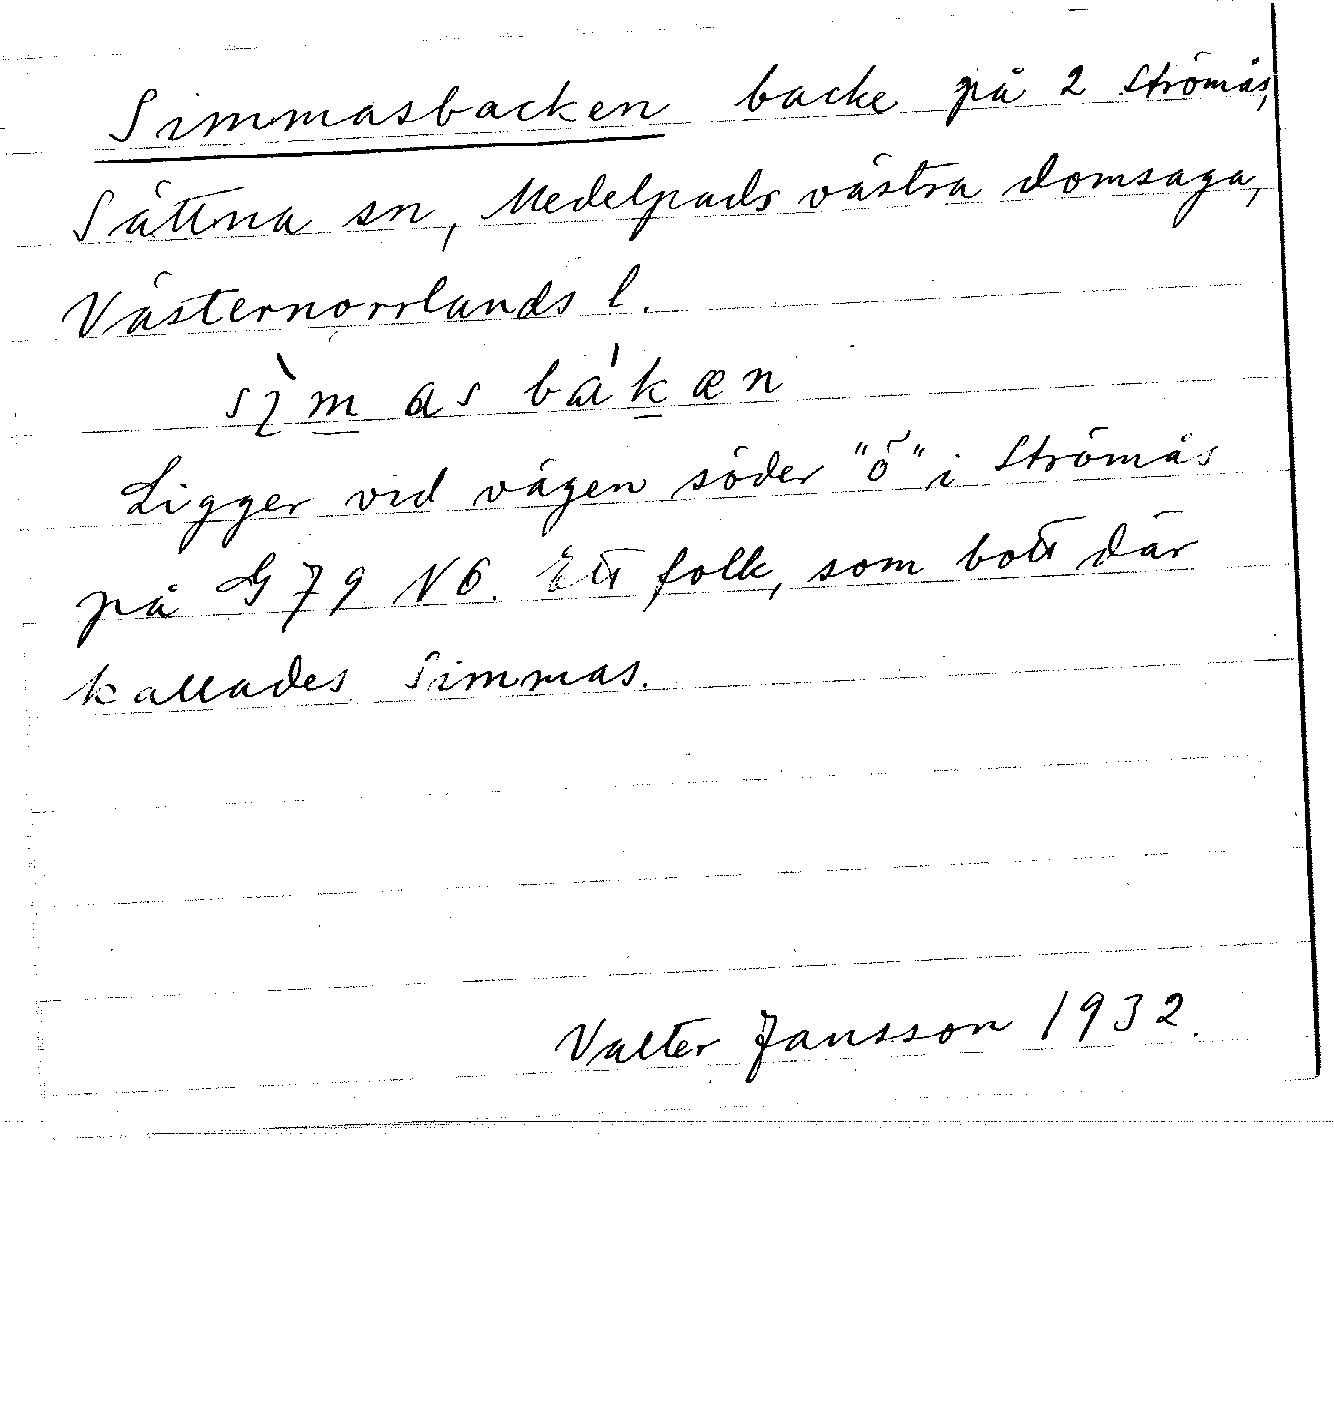 Simmasbacken backe på 2 Strömås,
Sättna sn, Medelpads västra domsaga,
Västernorrlands l.
sìmas bákæn
Ligger vid vägen söder "ö" i Strömås
på G 79 N6. Ett folk, som bott där
kallades Simmas.
Valter Jansson 1932.